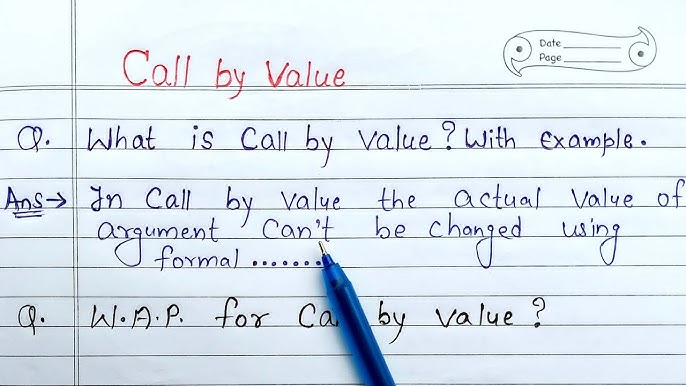 Date
Page
Call by Value
Q. What is Call by Value? With Example.
Ans→ In Call by Value the actual Value of
argument Can't be changed using
formal ........
Q. W.A.P. for Ca by Value?